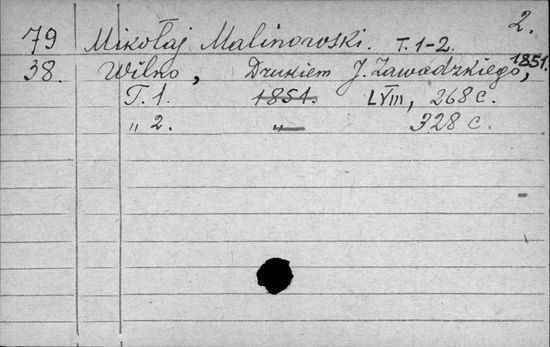 2.
79 Mikołaj Malinowski. T. 1-2.
38. Wilno, Drukiem J. Zawadzkiego, 1851.
T. 1. 1851. LVIII, 268 c.
„ 2. „ 328 c.